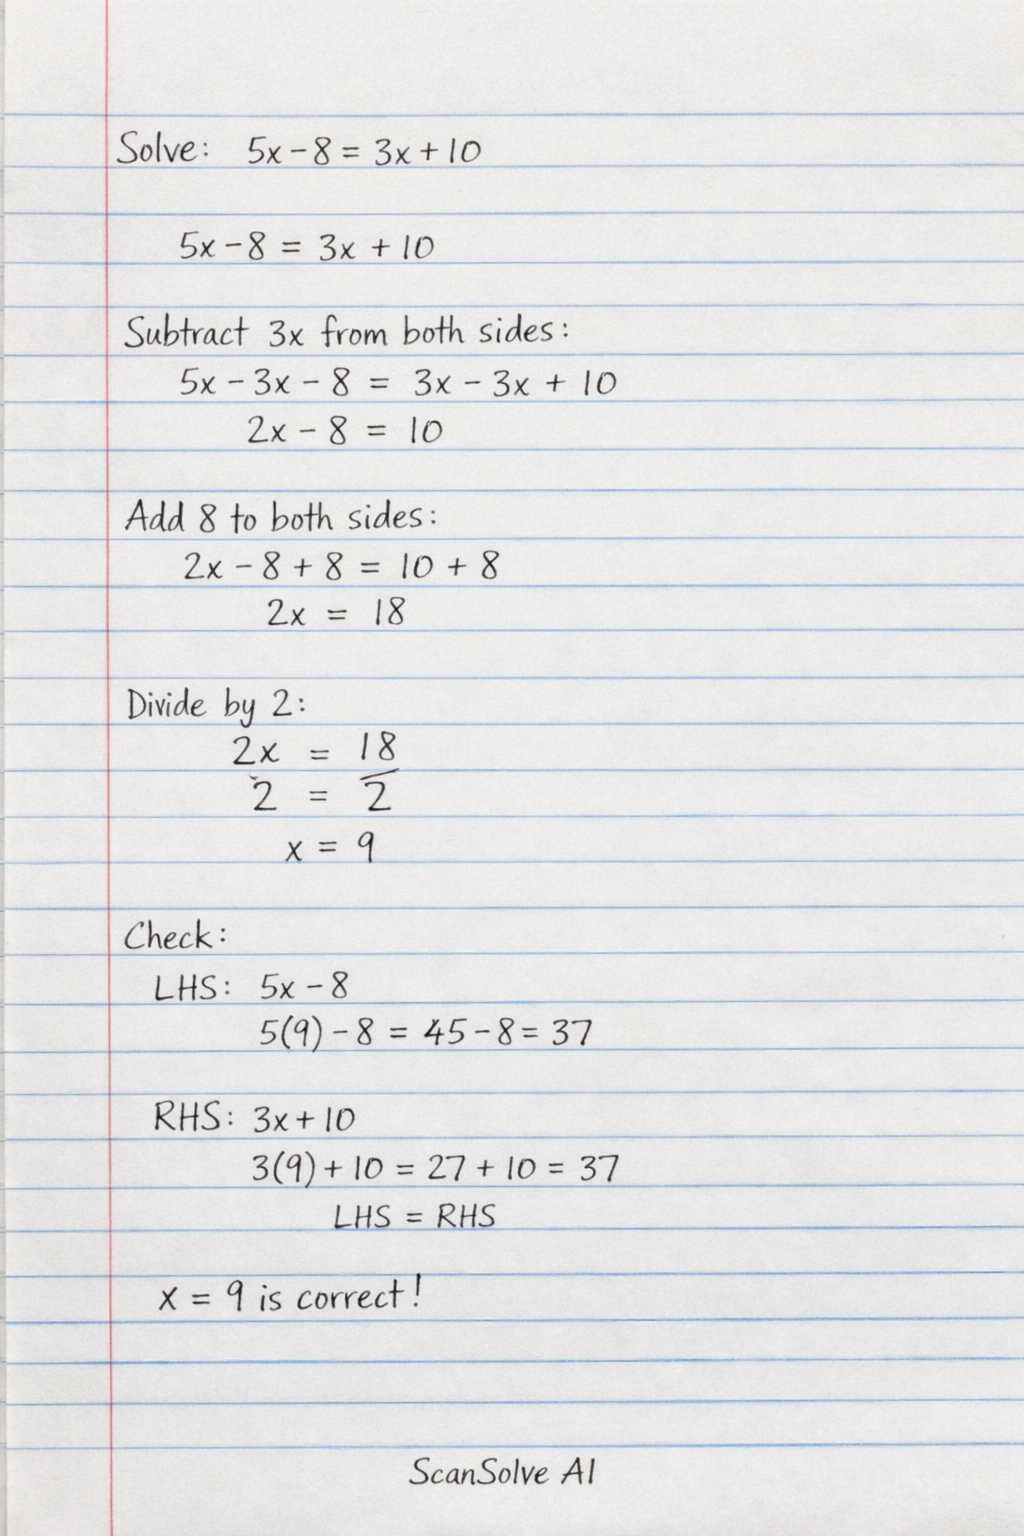 Solve: 5x - 8 = 3x + 10
5x - 8 = 3x + 10
Subtract 3x from both sides:
5x - 3x - 8 = 3x - 3x + 10
2x - 8 = 10
Add 8 to both sides:
2x - 8 + 8 = 10 + 8
2x = 18
Divide by 2:
2x = 18
2 = 2
x = 9
Check:
LHS: 5x - 8
5(9) - 8 = 45 - 8 = 37
RHS: 3x + 10
3(9) + 10 = 27 + 10 = 37
LHS = RHS
x = 9 is correct!
ScanSolve AI